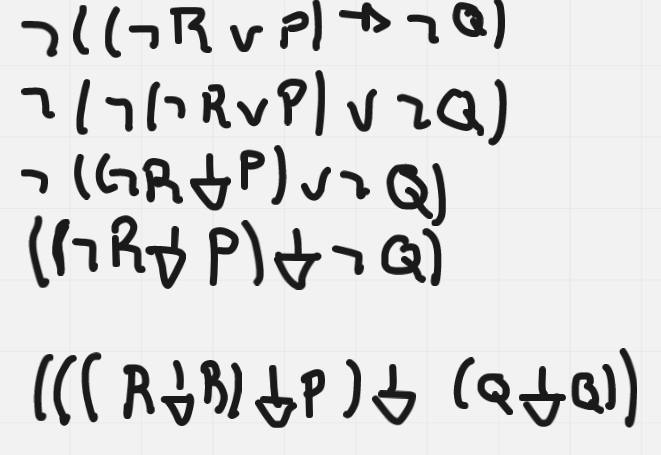 ¬((¬R∨P)→¬Q)
¬(¬(¬R∨P)∨¬Q)
¬((¬R↓P)∨¬Q)
((¬R↓P)↓¬Q)
(((R↓R)↓P)↓(Q↓Q))